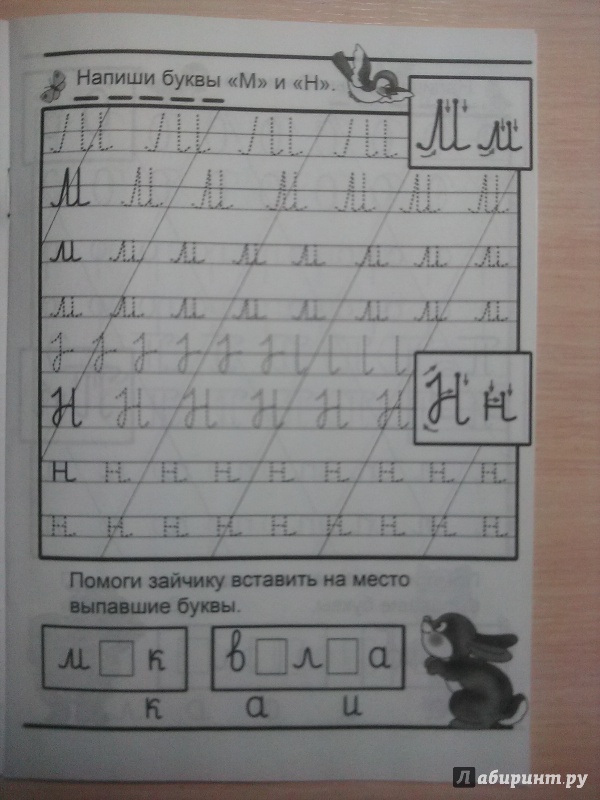 Напиши буквы «М» и «Н».
М М М М М м
М М М М М М М
м м м м м м м м
м м м м м м м м
Н Н Н Н Н Н Н н
н н н н н н н н
н н н н н н н н
Помоги зайчику вставить на место
выпавшие буквы.
м к в л а
к а и
Лабиринт.ру